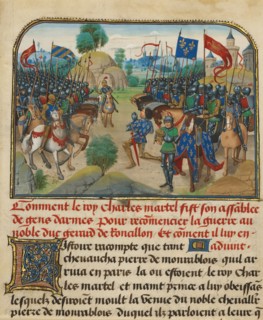 Comment le roy Charles martel fist son assablee
de gens darmes pour recomencier la guerre au
noble duc gerard de Roncillon Et coment il luy en
Listoire racompte que tant aduint
cheuaucha pierre de montrablois quil ar
riua en paris la ou estoient le roy Char
les martel et maint prince a luy obeissas
lesquelz desiroiet moult la venue du noble cheualier
pierre de montrablois duquel ilz parloient a leure q